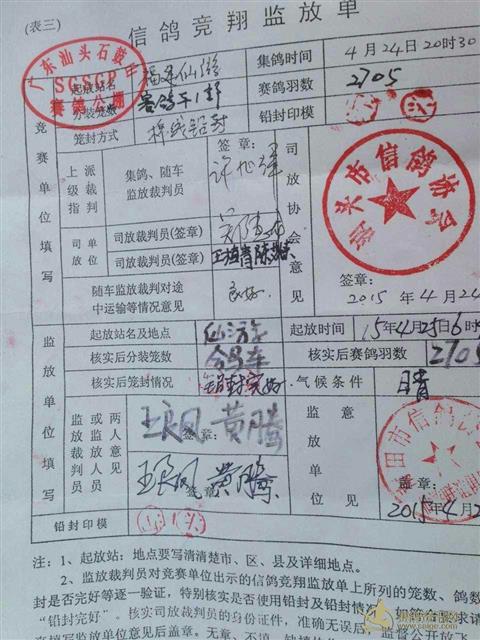 (表三)
信鸽竞翔监放单
广东汕头石鼓山
SGSGP
赛鸽公棚
起放站名 福建仙游 集鸽时间 4月24日20时30
分装笼数 赛鸽车1部 赛鸽羽数 2705
笼封方式 铅封 铅封印模
竞赛单位填写
上级指派裁判
集鸽、随车监放裁判员
签章:
司放单位
司放裁判员(签章)
司放裁判员(签章)
随车监放裁判对途中运输等情况意见 良好
司放协会意见
汕头市信鸽协会
签章:
2015年4月24
监放单位填写
起放站名及地点 仙游 起放时间 15年4月25日6时
核实后分装笼数 鸽车 核实后赛鸽羽数 2705
核实后笼封情况 铅封完好 气候条件 晴
监放裁判员
或两人放飞人员意见
王良凤 黄腾
签章:
王良凤 黄腾
签章:
监放单位意见
田市信鸽
盖章:
2015年4月2
铅封印模
注:1、起放站:地点要写清清楚市、区、县及详细地点。
2、监放裁判员对竞赛单位出示的信鸽竞翔监放单上所列的笼数、鸽数
封是否完好等逐一验证,特别核实是否使用铅封及铅封情况,如符合要求请
“铅封完好”。核实司放裁判员的身份证件,准确无误后,监督公开放飞